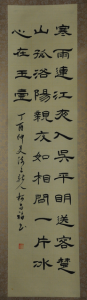 寒雨連江夜入吳平明送客楚
山孤洛陽親友如相問一片冰
心在玉壺
丁酉仲夏